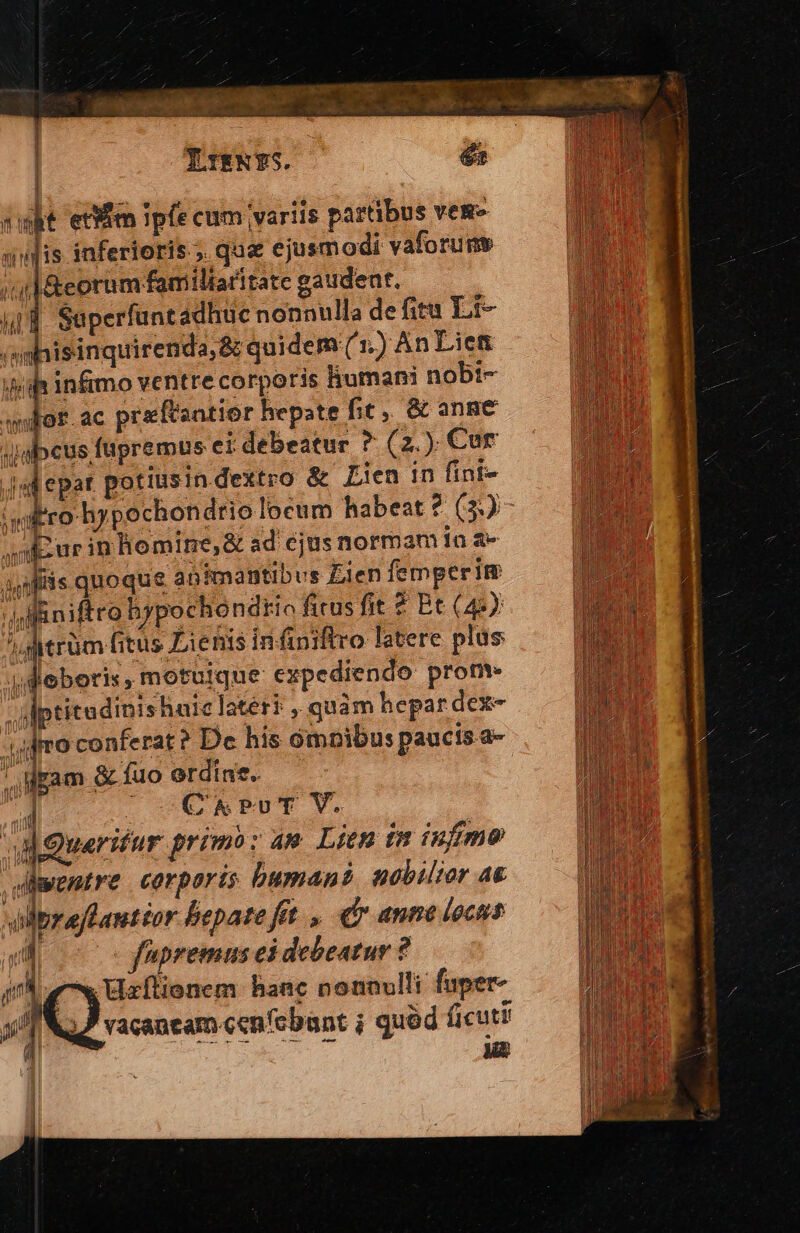 LIENIS. 61
etiam ipſe cum variis partibus ven-
is inferioris, quæ ejusmodi vaſorum
& eorum familiaritate gaudent.
Superſunt adhuc nonnulla de ſitu Li-
inquirenda, & quidem (1.) An Lien
infimo ventre corporis humani nobi-
ac præſtantior hepate ſit, & anne
ſupremus ei debeatur ? (2.) Cur
epar potius in dextro & Lien in ſini-
hypochondrio locum habeat ? (3.)
Cur in homine, & ad ejus normam in a-
quoque animantibus Lien ſemper in
ſiniſtro hypochondrio ſitus ſit ? Et (4.)
trùm ſitus Lienis in ſiniſtro latere plus
roboris, motuique expediendo prom-
ptitudinis huic lateri, quàm hepar dex-
conferat ? De his omnibus paucis a-
gam & ſuo ordine.
CAPUT V.
Quæritur primò: an Lien in infimo
ventre corporis humani nobilior ac
præſtantior hepate ſit, & anne locus
ſupremus ei debeatur ?
QUæſtionem hanc nonnulli ſuper-
vacaneam cenſebunt ; quòd ſicuti
in